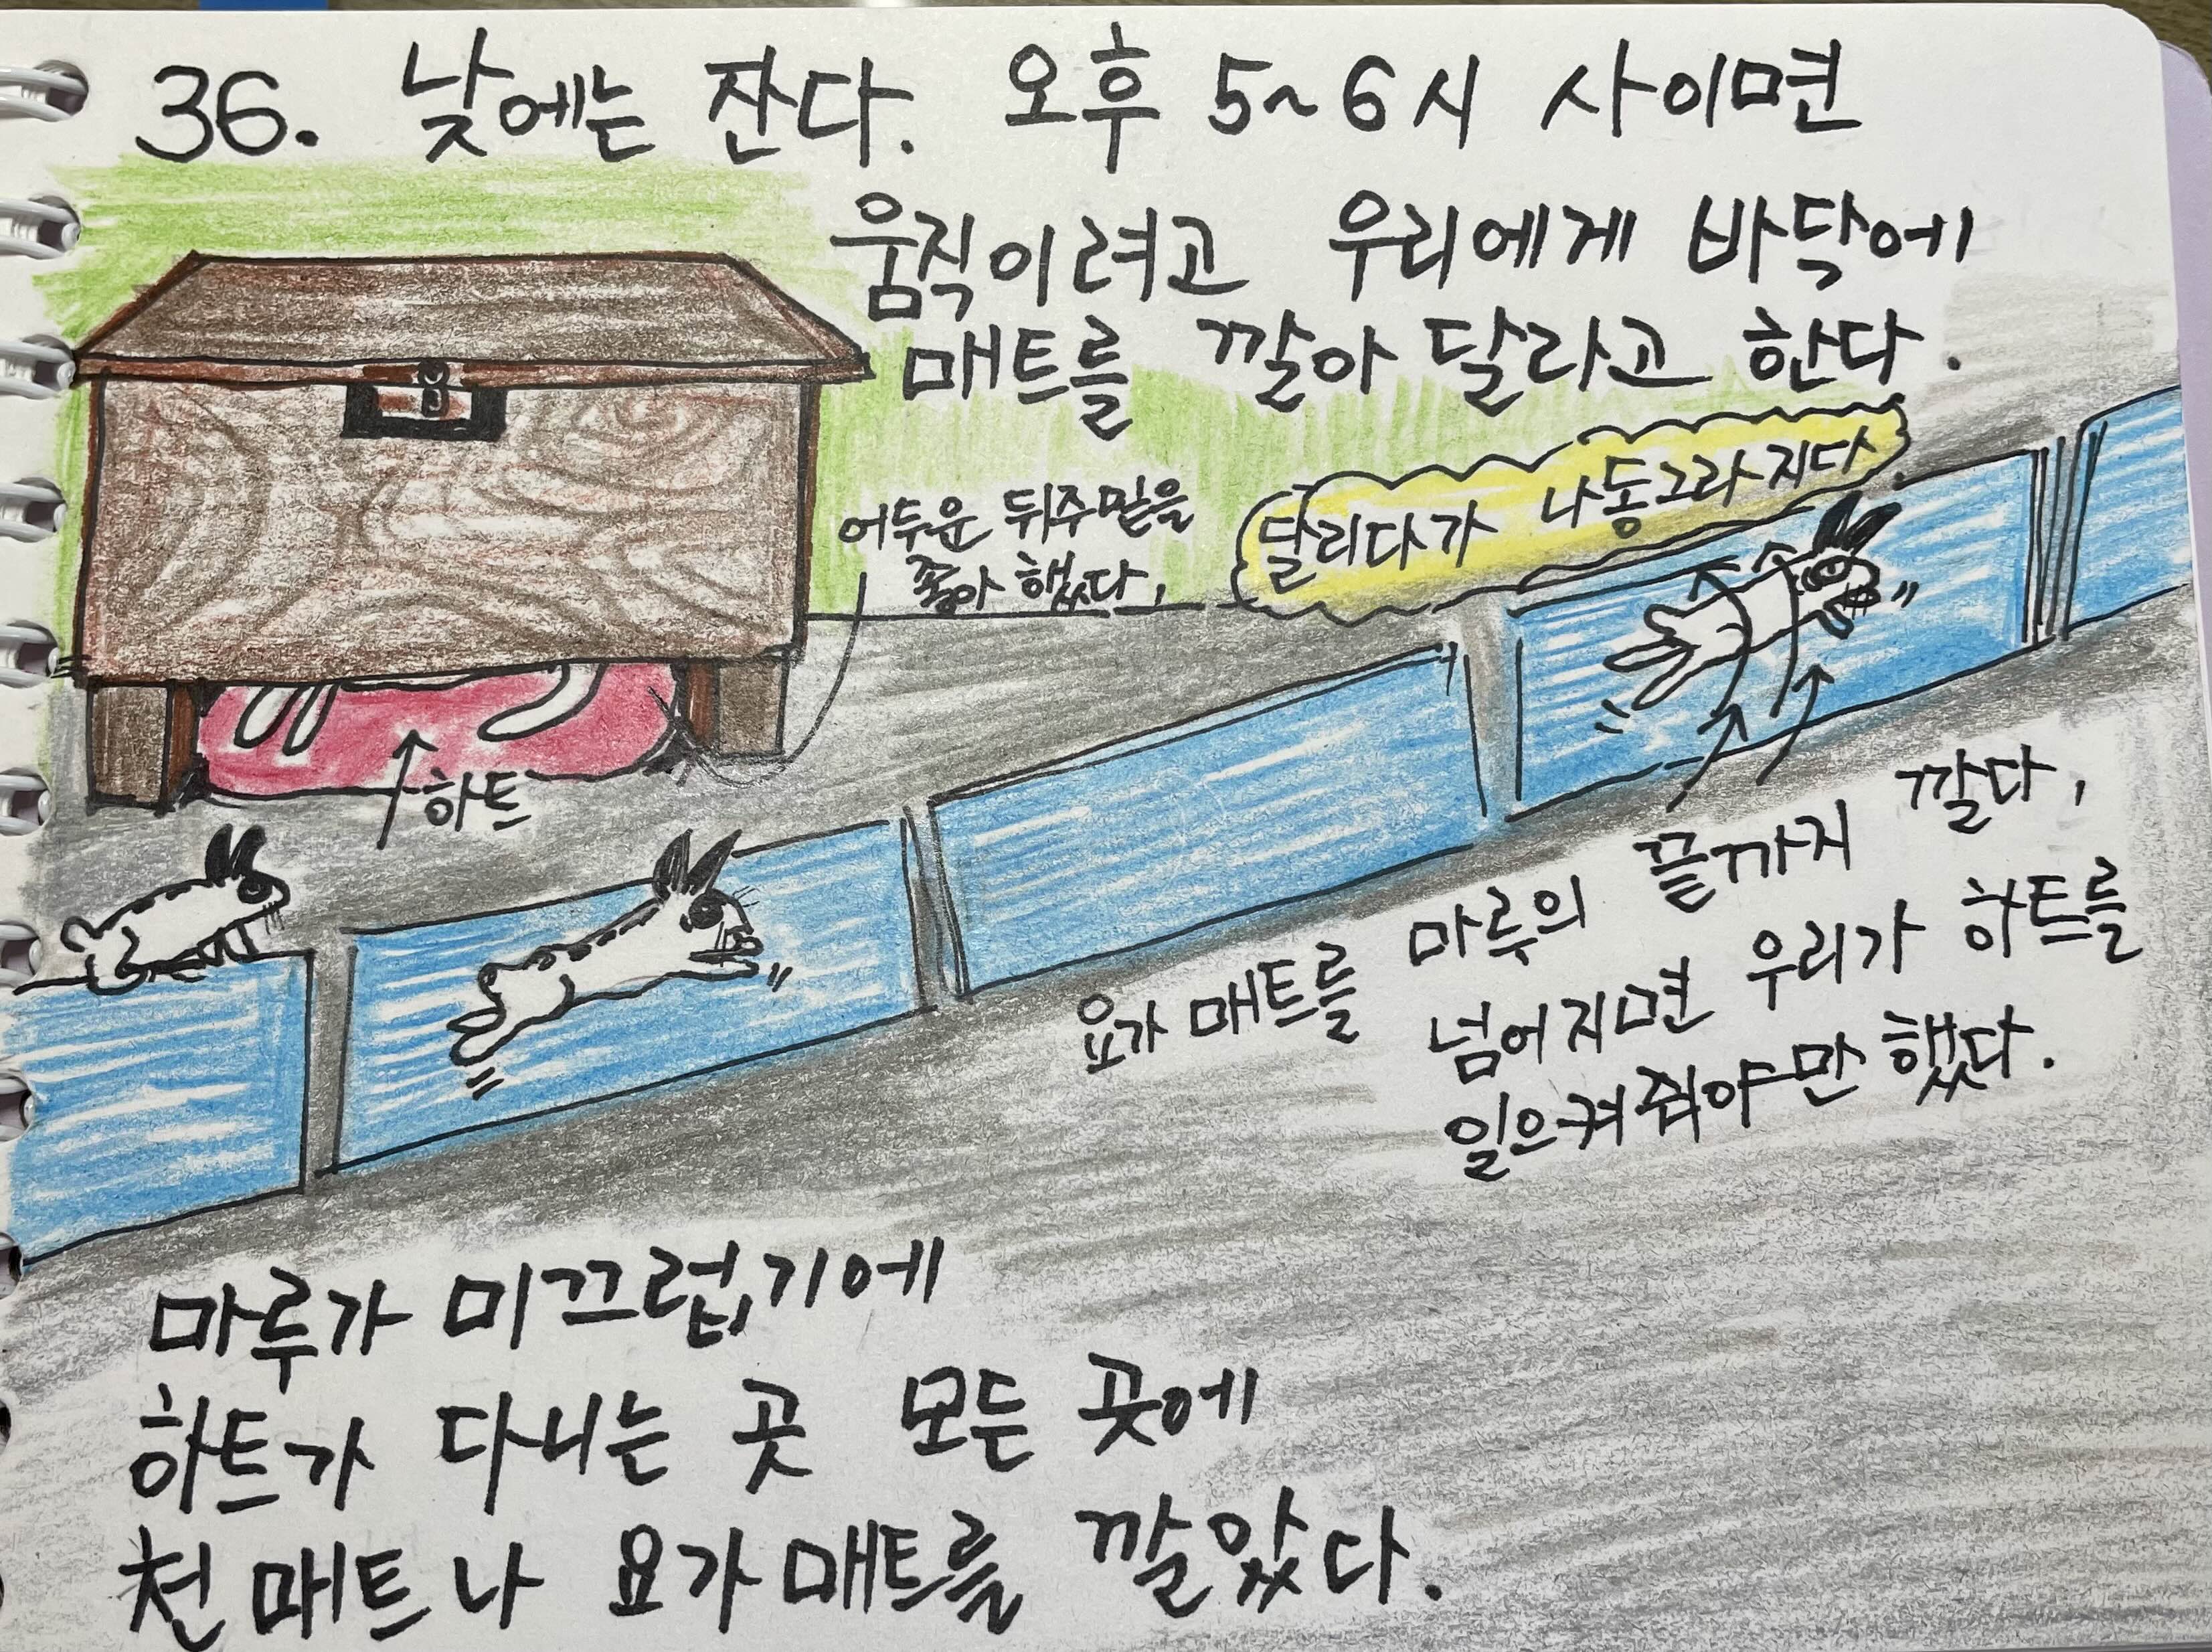 36. 낮에는 잔다. 오후 5~6시 사이면
움직이려고 우리에게 바닥에
매트를 깔아 달라고 한다.
어두운 뒤주밑을
좋아 했다.
달리다가 나동그라지다.
하트
요가 매트를 마루의 끝까지 깔다,
넘어지면 우리가 하트를
일으켜줘야만 했다.
마루가 미끄럽기에
하트가 다니는 곳 모든 곳에
천 매트나 요가매트를 깔았다.